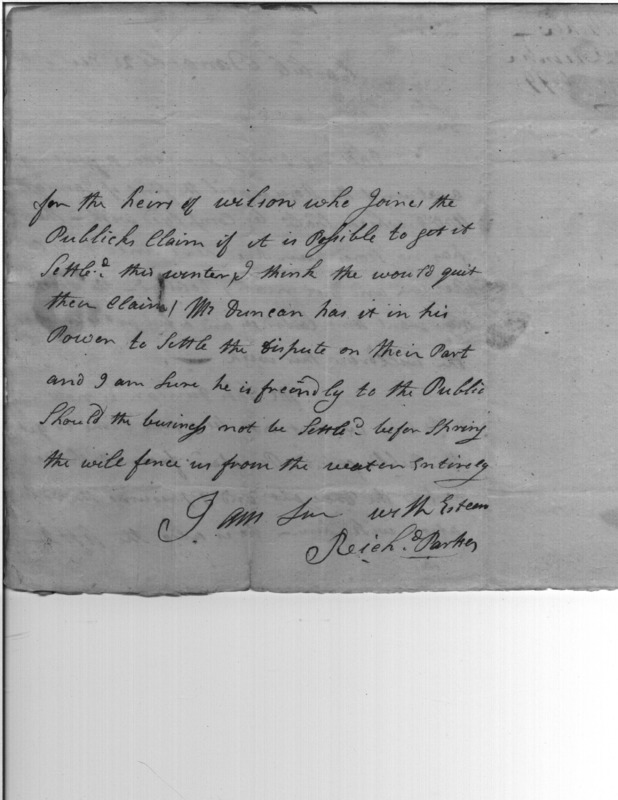 for the heirs of wilson who Joines the
Publicks Claim if it is Possible to get it
Settle.d this winter, I think the would quit
their Claim / Mr Duncan has it in his
Power to Settle the dispute on their Part
and I am Sure he is freindly to the Public
Should the business not be Settle.d befor Spring
the will fence us from the water Entirely
I am Sur with Esteem
Reich.d Parker